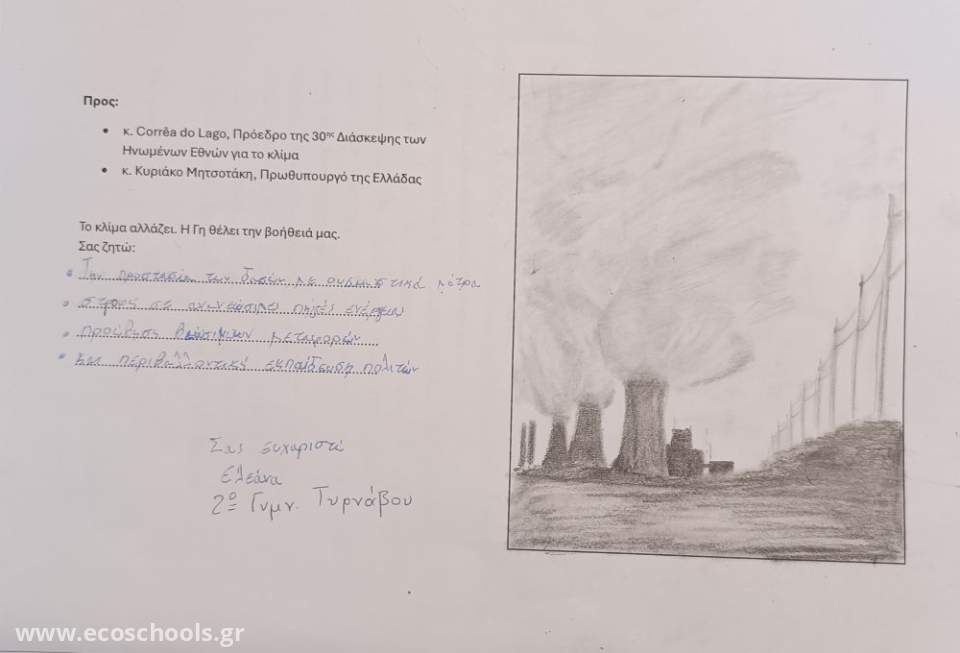 Προς:
• κ. Corrêa do Lago, Πρόεδρο της 30ης Διάσκεψης των
Ηνωμένων Εθνών για το κλίμα
• κ. Κυριάκο Μητσοτάκη, Πρωθυπουργό της Ελλάδας
Το κλίμα αλλάζει. Η Γη θέλει την βοήθειά μας.
Σας ζητώ:
• Την προστασία των δασών με ουσιαστικά μέτρα
• στροφή σε ανανεώσιμες πηγές ενέργειας
• προώθηση βιώσιμων μεταφορών
• και περιβαλλοντική εκπαίδευση πολιτών
Σας ευχαριστώ
Ελεάνα
2ο Γυμν. Τυρνάβου
www.ecoschools.gr